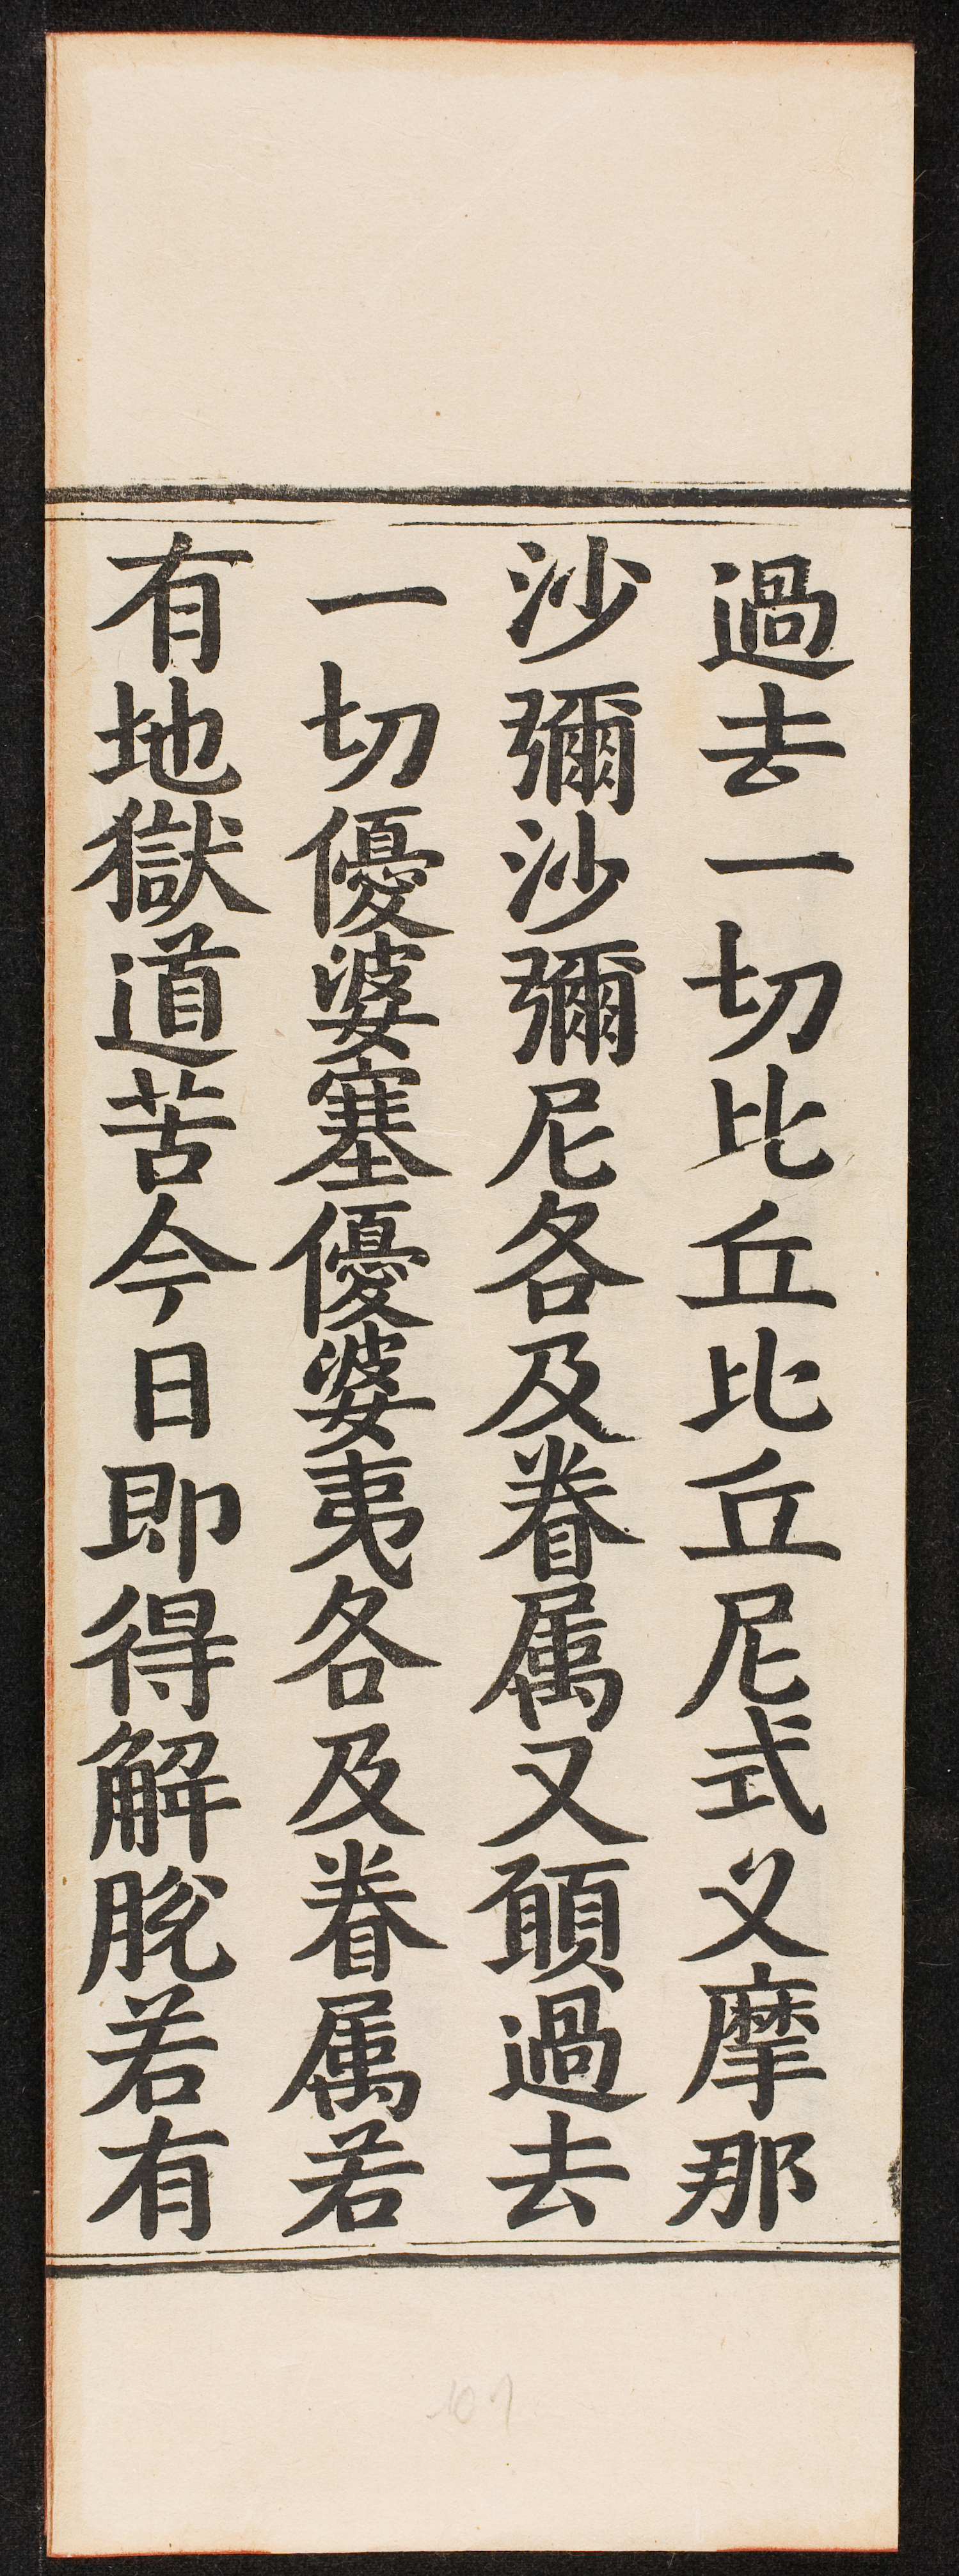 過去一切比丘比丘尼式叉摩那
沙彌沙彌尼各及眷属又願過去
一切優婆塞優婆夷各及眷属若
有地獄道苦今日即得解脫若有
101